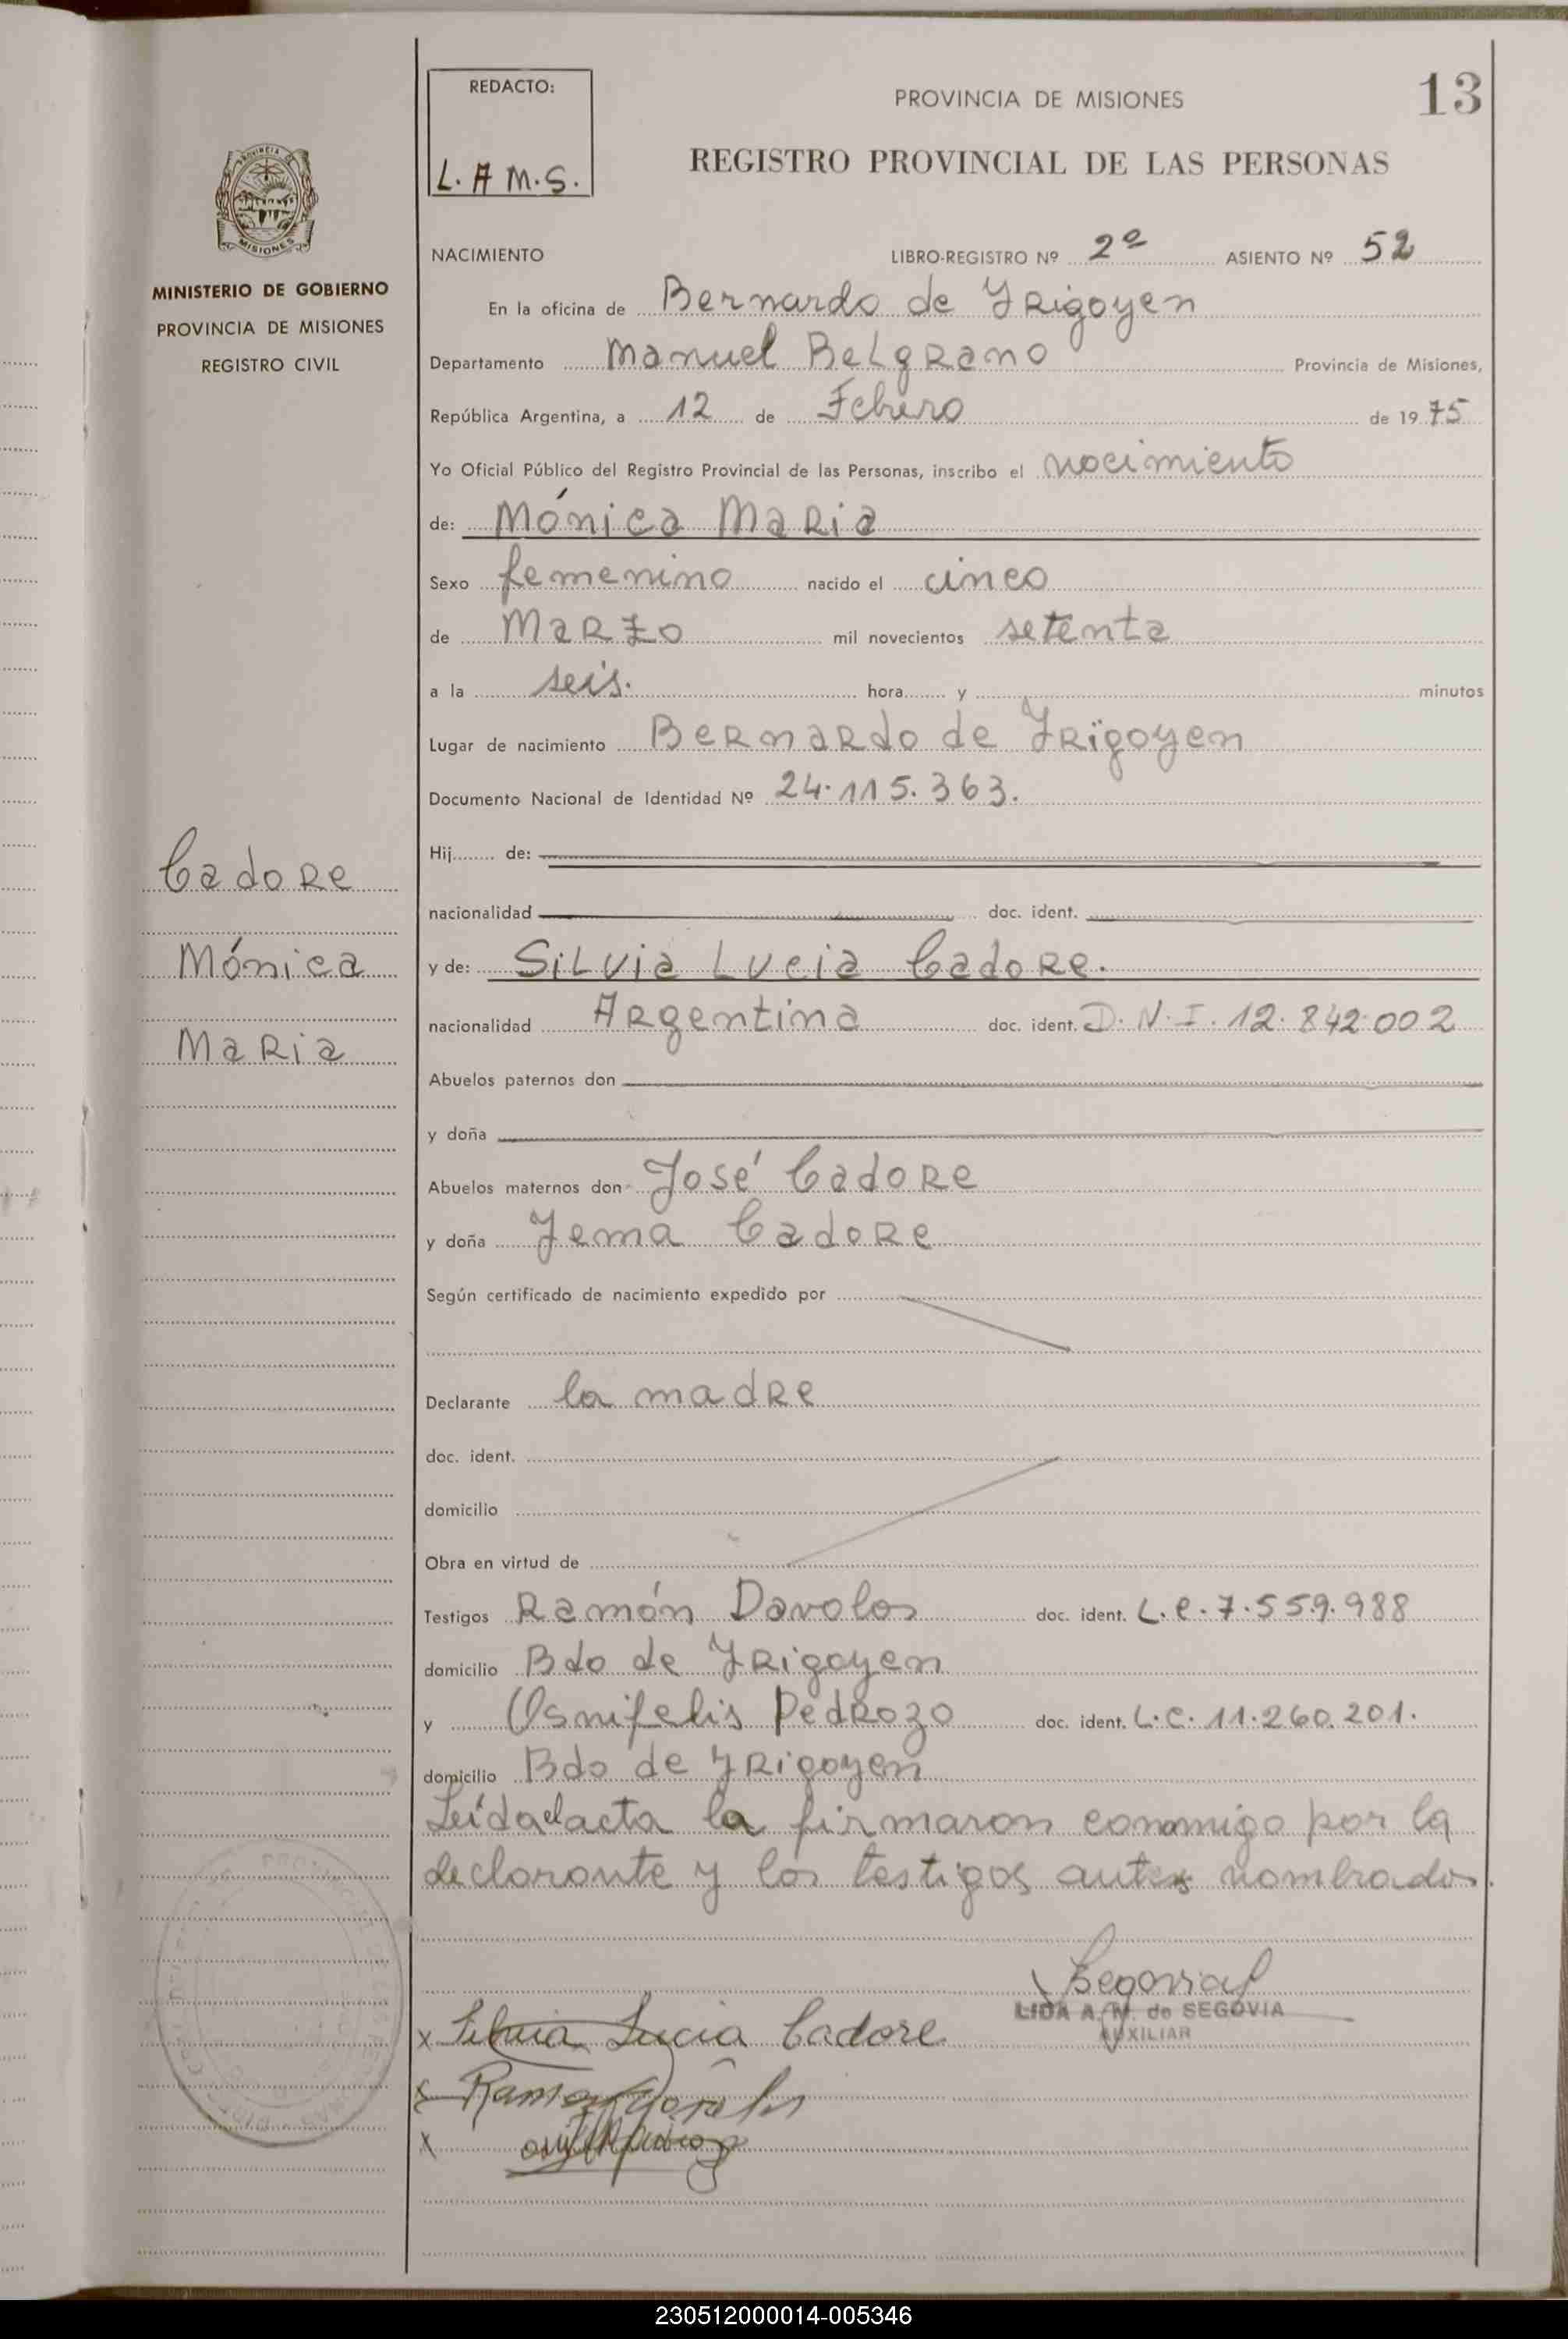 13
REDACTO:
L. A M. S.
PROVINCIA DE MISIONES
REGISTRO PROVINCIAL DE LAS PERSONAS
MISIONES
MINISTERIO DE GOBIERNO
PROVINCIA DE MISIONES
REGISTRO CIVIL
NACIMIENTO LIBRO-REGISTRO Nº 2º ASIENTO Nº 52
En la oficina de Bernardo de Yrigoyen
Departamento Manuel Belgrano Provincia de Misiones,
República Argentina, a 12 de Febrero de 1975
Yo Oficial Público del Registro Provincial de las Personas, inscribo el nacimiento
de: Mónica Maria
Sexo femenino nacido el cinco
de Marzo mil novecientos setenta
a la seis. hora y minutos
Lugar de nacimiento Bernardo de Yrigoyen
Documento Nacional de Identidad Nº 24.115.363.
Hij de:
nacionalidad doc. ident.
Cadore
Mónica
Maria
y de: Silvia Lucia Cadore.
nacionalidad Argentina doc. ident. D. N. I. 12.842.002
Abuelos paternos don
y doña
Abuelos maternos don José Cadore
y doña Jema Cadore
Según certificado de nacimiento expedido por
Declarante la madre
doc. ident.
domicilio
Obra en virtud de
Testigos Ramón Davolos doc. ident. L. e. 7.559.988
domicilio Bdo de Yrigoyen
y Osnifelis Pedrozo doc. ident. L. C. 11.260.201.
domicilio Bdo de Yrigoyen
Leída el acta la firmaron conmigo por la
declarante y los testigos antes nombrados.
Segovia
LIDA A. M. de SEGOVIA
AUXILIAR
x Silvia Lucia Cadore
x Ramon
x
230512000014-005346